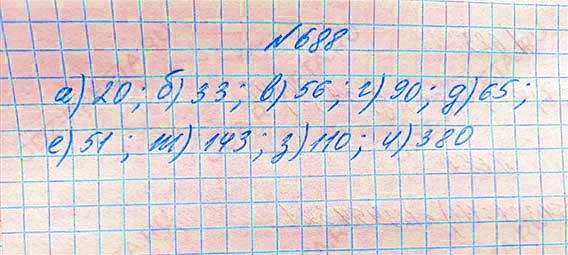 №688
а) 20; б) 33; в) 56; г) 90; д) 65;
е) 51; ж) 143; з) 110; и) 380